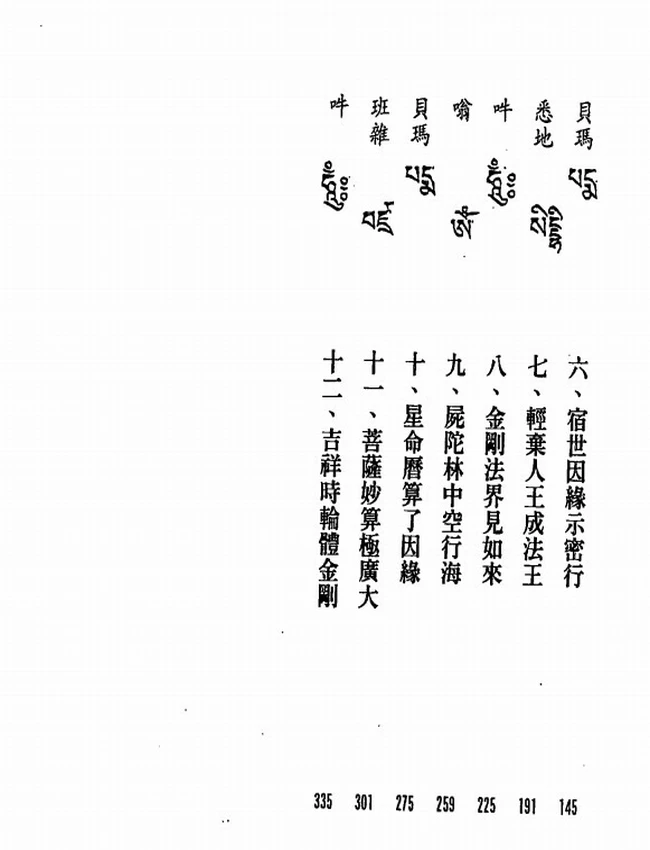 貝瑪 པདྨ 六、宿世因緣示密行 145
悉地 སིདྡྷི 七、輕棄人王成法王 191
吽 ཧཱུྃ༔ 八、金剛法界見如來 225
嗡 ཨོཾ 九、屍陀林中空行海 259
貝瑪 པདྨ 十、星命曆算了因緣 275
班雜 བཛྲ 十一、菩薩妙算極廣大 301
吽 ཧཱུྃ༔ 十二、吉祥時輪體金剛 335